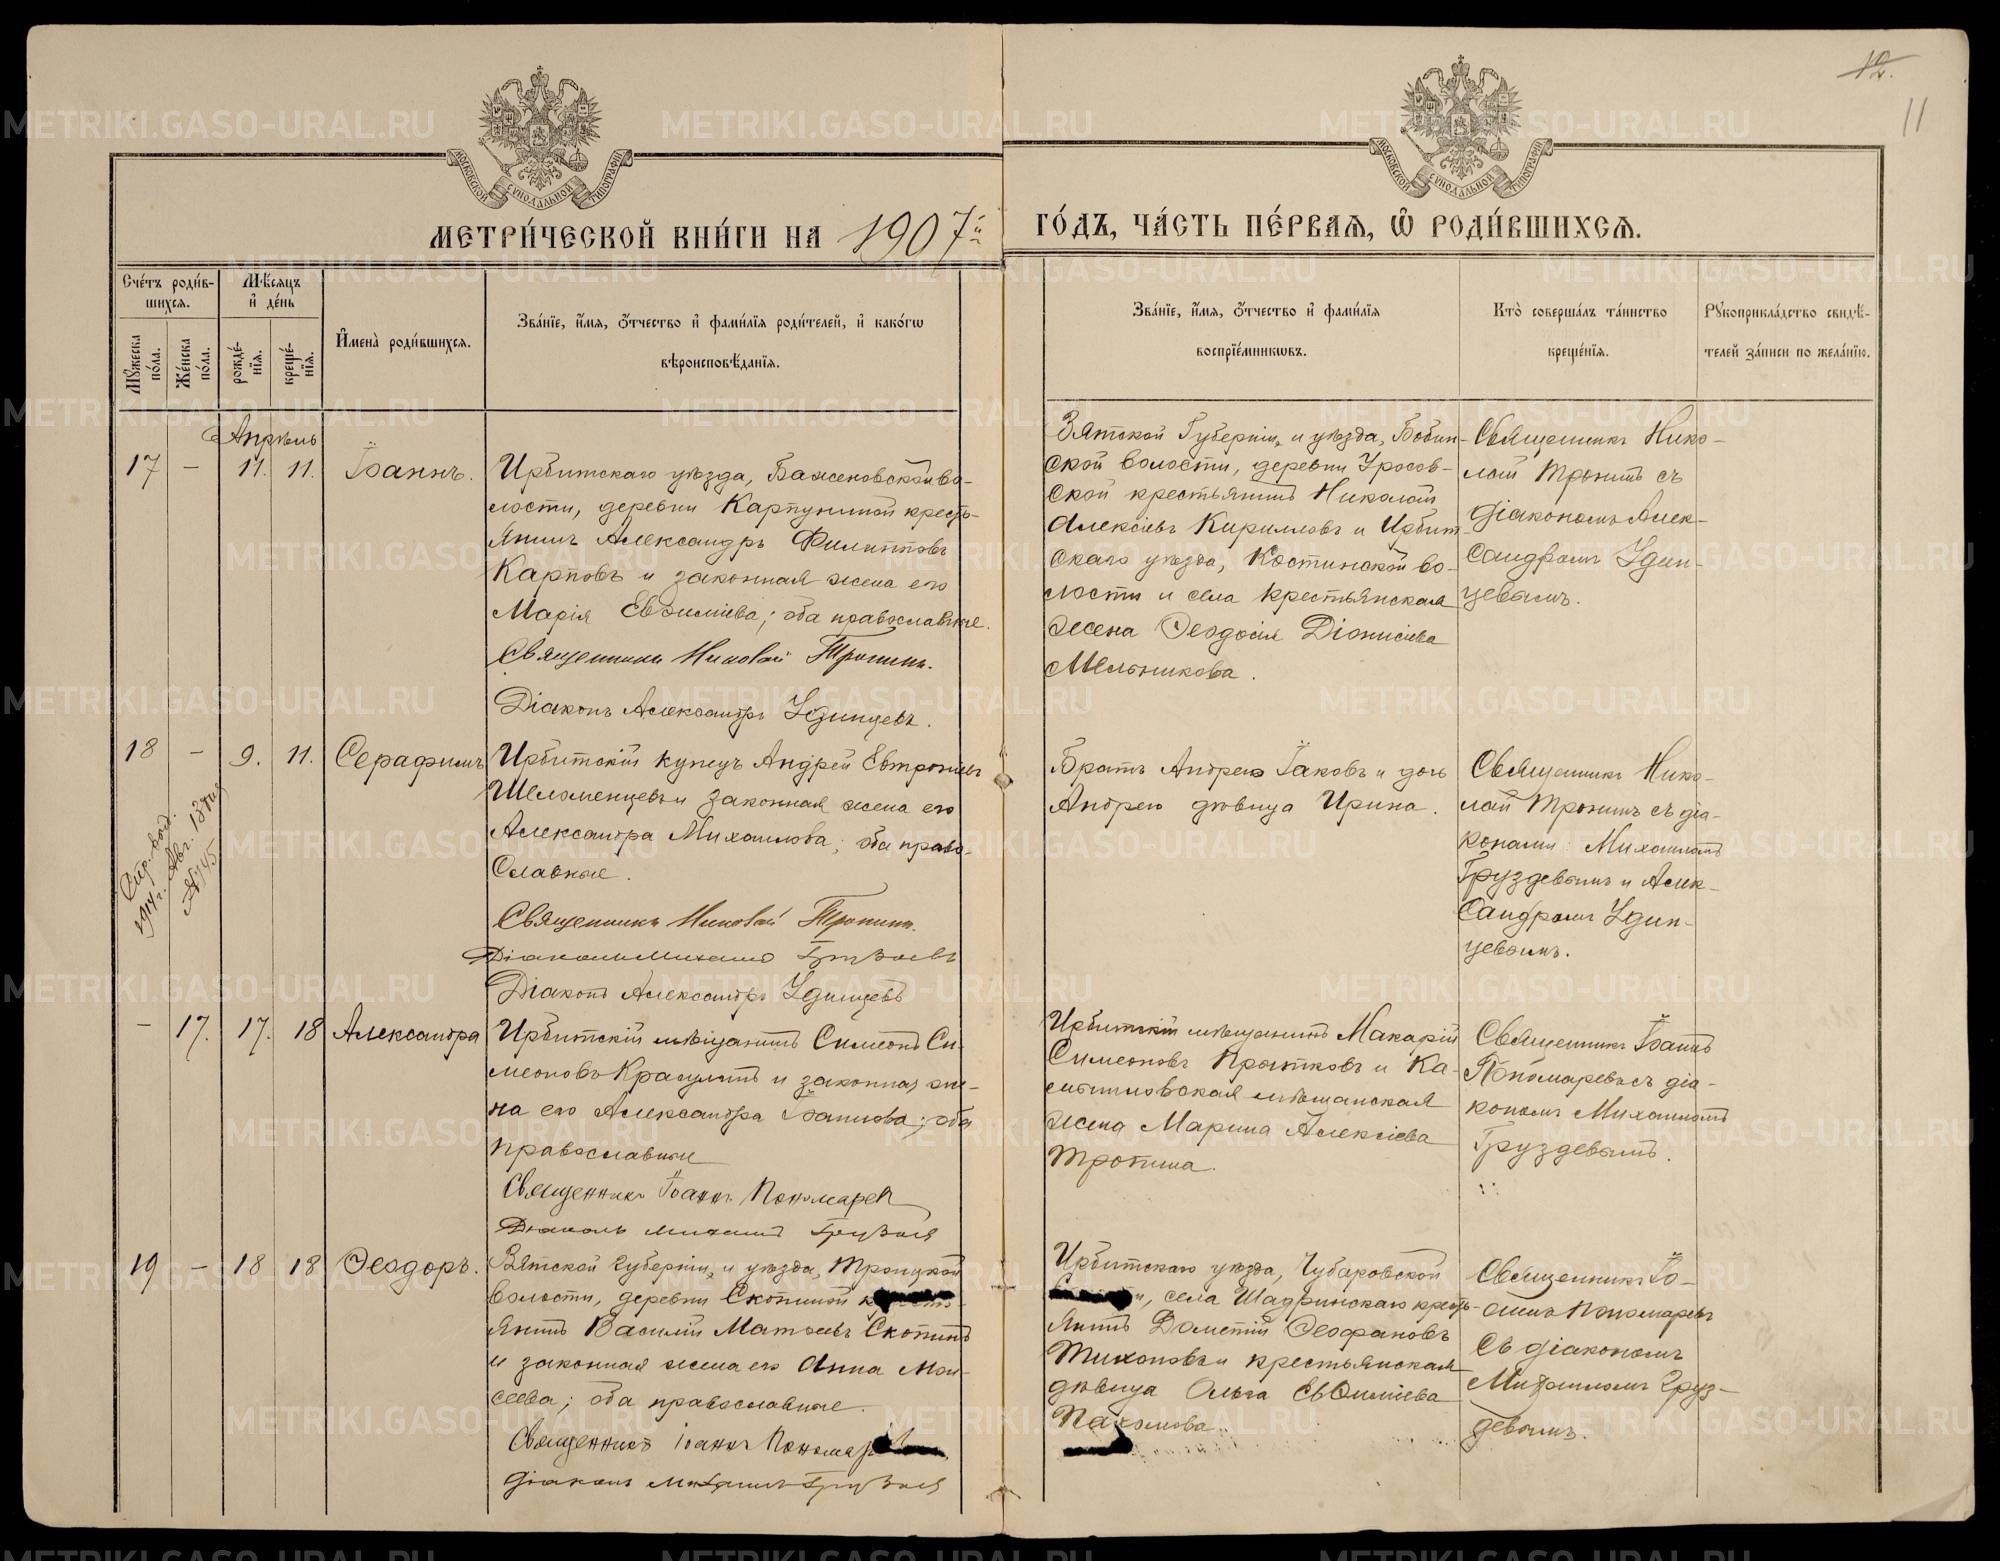 12.
11
МОСКОВСКОЙ СѴНОДАЛЬНОЙ ТИПОГРАФІИ
МОСКОВСКОЙ СѴНОДАЛЬНОЙ ТИПОГРАФІИ
МЕТРИЧЕСКОЙ КНИГИ НА 1907й ГОДЪ, ЧАСТЬ ПЕРВАЯ, Ѡ РОДИВШИХСЯ.
Счетъ родив-
шихся.
Мужеска пола.
Женска пола.
Мѣсяцъ
и день
рожде-
нія.
креще-
нія.
Имена родившихся.
Званіе, имя, отчество и фамилія родителей, и какогѡ
вѣроисповѣданія.
Званіе, имя, отчество и фамилія
воспріемниковъ.
Кто совершалъ таинство
крещенія.
Рукоприкладство свидѣ-
телей записи по желанію.
Апрѣль
17 – 11. 11. Іоаннъ.
Ирбитскаго уѣзда, Баженовской во-
лости, деревни Карпуниной кресть-
янинъ Александръ Филипповъ
Карповъ и законная жена его
Марія Евѳиміева; оба православные.
Священникъ Николай Тронинъ.
Діаконъ Александръ Удинцевъ.
Вятской Губерніи, и уѣзда, Бобин-
ской волости, деревни
ской крестьянинъ Николай
Алексіевъ Кирилловъ и Ирбит-
скаго уѣзда, Костинской во-
лости и села крестьянская
жена Ѳеодосія Діонисіева
Мельникова.
Священникъ Нико-
лай Тронинъ съ
діакономъ Алек-
сандромъ Удин-
цевымъ.
18 – 9. 11. Серафимъ
Ирбитскій купецъ Андрей Евтропіевъ
Шеломенцевъ и законная жена его
Александра Михаилова; оба право-
славные.
Священникъ Николай Тронинъ.
Діаконъ Михаилъ Груздевъ
Діаконъ Александръ Удинцевъ
Братъ Андрею Іаковъ и дочь
Андрею дѣвица Ирина.
Священникъ Нико-
лай Тронинъ съ діа-
конами: Михаиломъ
Груздевымъ и Алек-
сандромъ Удин-
цевымъ.
1914 г. Авг. 13 дня
№ 145
– 17. 17. 18 Александра
Ирбитскій мѣщанинъ Симеонъ Си-
меоновъ Красулинъ и законная же-
на его Александра Іоаннова; оба
православные
Священникъ Іоаннъ Пономаревъ
Діаконъ Михаилъ Груздевъ
Ирбитскій мѣщанинъ Макарій
Симеоновъ Прытковъ и Ка-
мышловская мѣщанская
жена Марина Алексіева
Тронина.
Священникъ Іоаннъ
Пономаревъ съ діа-
кономъ Михаиломъ
Груздевымъ.
19 – 18 18 Ѳеодоръ.
Вятской губерніи, и уѣзда, Троицкой
волости, деревни Скопиной
янинъ Василій Матѳіевъ Скопинъ
и законная жена его Анна Мои-
сеева; оба православные.
Священникъ Іоаннъ
Діаконъ Михаилъ Груздевъ
Ирбитскаго уѣзда, Чубаровской
села Шадринскаго кресть-
янинъ Дометій Ѳеофановъ
Тихоновъ и крестьянская
дѣвица Ольга Евѳиміева
Пахомова.
Священникъ Іо-
аннъ Пономаревъ
съ діакономъ
Михаиломъ Груз-
девымъ.
METRIKI.GASO-URAL.RU